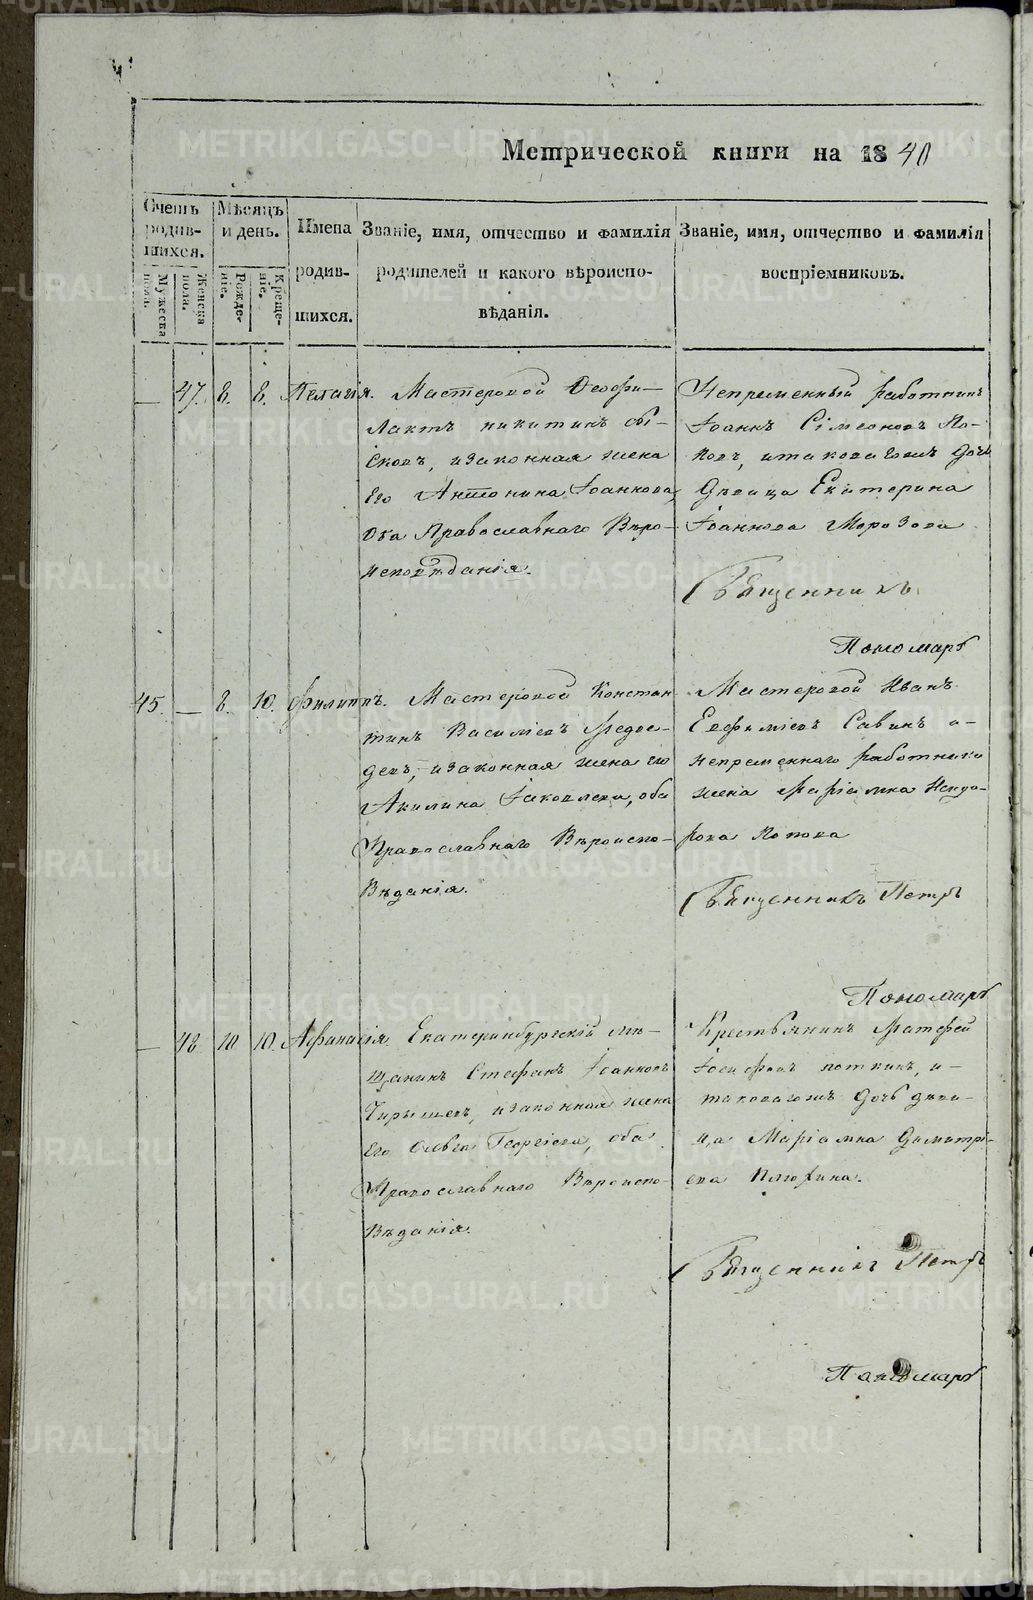 Метрической книги на 1840
Счетъ родив-шихся.
Мужеска пола.
Женска пола.
Мѣсяцъ и день.
Рожде-ніе.
Креще-ніе.
Имена родив-шихся.
Званіе, имя, отчество и фамилія
родителей и какого вѣроиспо-
вѣданія.
Званіе, имя, отчество и фамилія
воспріемниковъ.
— 47. 8. 8. Пелагія. Мастеровой Феофи-
лактъ никитинъ
изаконная жена
Его Антонина Іоаннова,
Оба Православнаго Вѣро-
исповѣданія.
Непременный работникъ
Іоаннъ Сімеоновъ По-
повъ, итаковагожъ дочь
Девица Екатерина
Іоаннова Морозова
Священникъ
Пономарь
45. — 8. 10. Филиппъ. Мастеровой Констан
тинъ Василіевъ Медве-
девъ, изаконная жена его
Акилина Іаковлева, оба
Православнаго Вѣроиспо-
Вѣданія.
Мастеровой Иванъ
Евфиміевъ Савинъ и-
непременнаго работника
жена Маріамна Исидо-
рова Попова
Священникъ Петръ
Пономарь
— 48. 10 10. Афанасія. Екатеринбургскій мѣ-
щанинъ Стефанъ Іоанновъ
изаконная жена
Его Ольга Георгіева, оба
Православнаго Вѣроиспо-
Вѣданія.
Крестьянинъ Матфей
Іосифовъ и-
таковагожъ дочь деви-
ца Маріамна Димитрі-
ева
Священникъ Петръ
Пономарь
METRIKI.GASO-URAL.RU